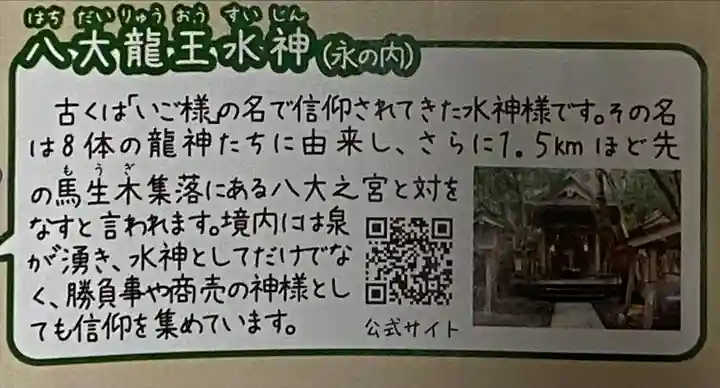 はちだいりゅうおうすいじん
八大龍王水神(永の内)
古くは「いご様」の名で信仰されてきた水神様です。その名
は8体の龍神たちに由来し、さらに1.5kmほど先
もうぎ
の馬生木集落にある八大之宮と対を
なすと言われます。境内には泉
が湧き、水神としてだけでな
く、勝負事や商売の神様とし
ても信仰を集めています。
公式サイト